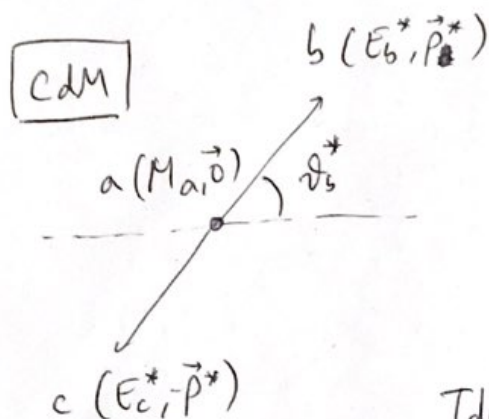 CdM
b (E_b^*, \vec{p}^*)
a (M_a, \vec{0})
ϑ_b^*
c (E_c^*, -\vec{p}^*)